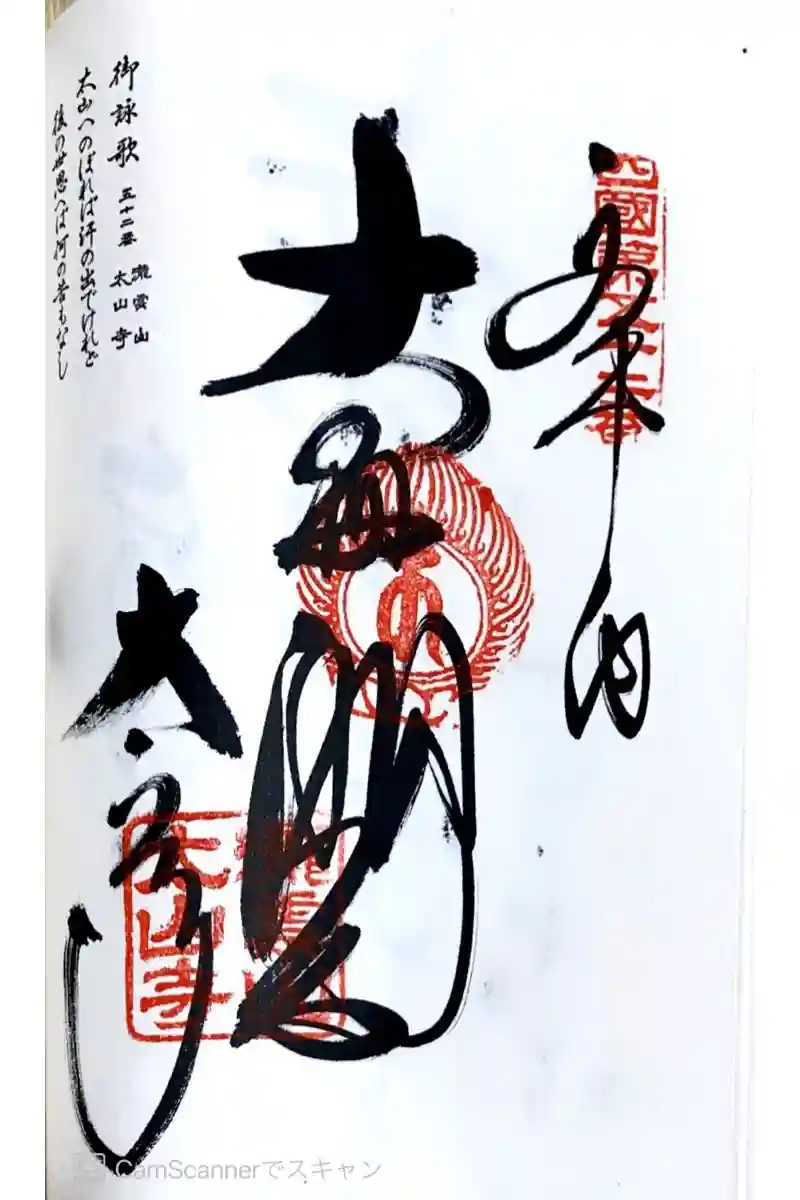 四國第五十二番
奉納
大悲閣
太山寺
太山寺
御詠歌 五十二番 瀧雲山 太山寺
太山へのぼれば汗の出でけれど
後の世思へば何の苦もなし
CamScannerでスキャン